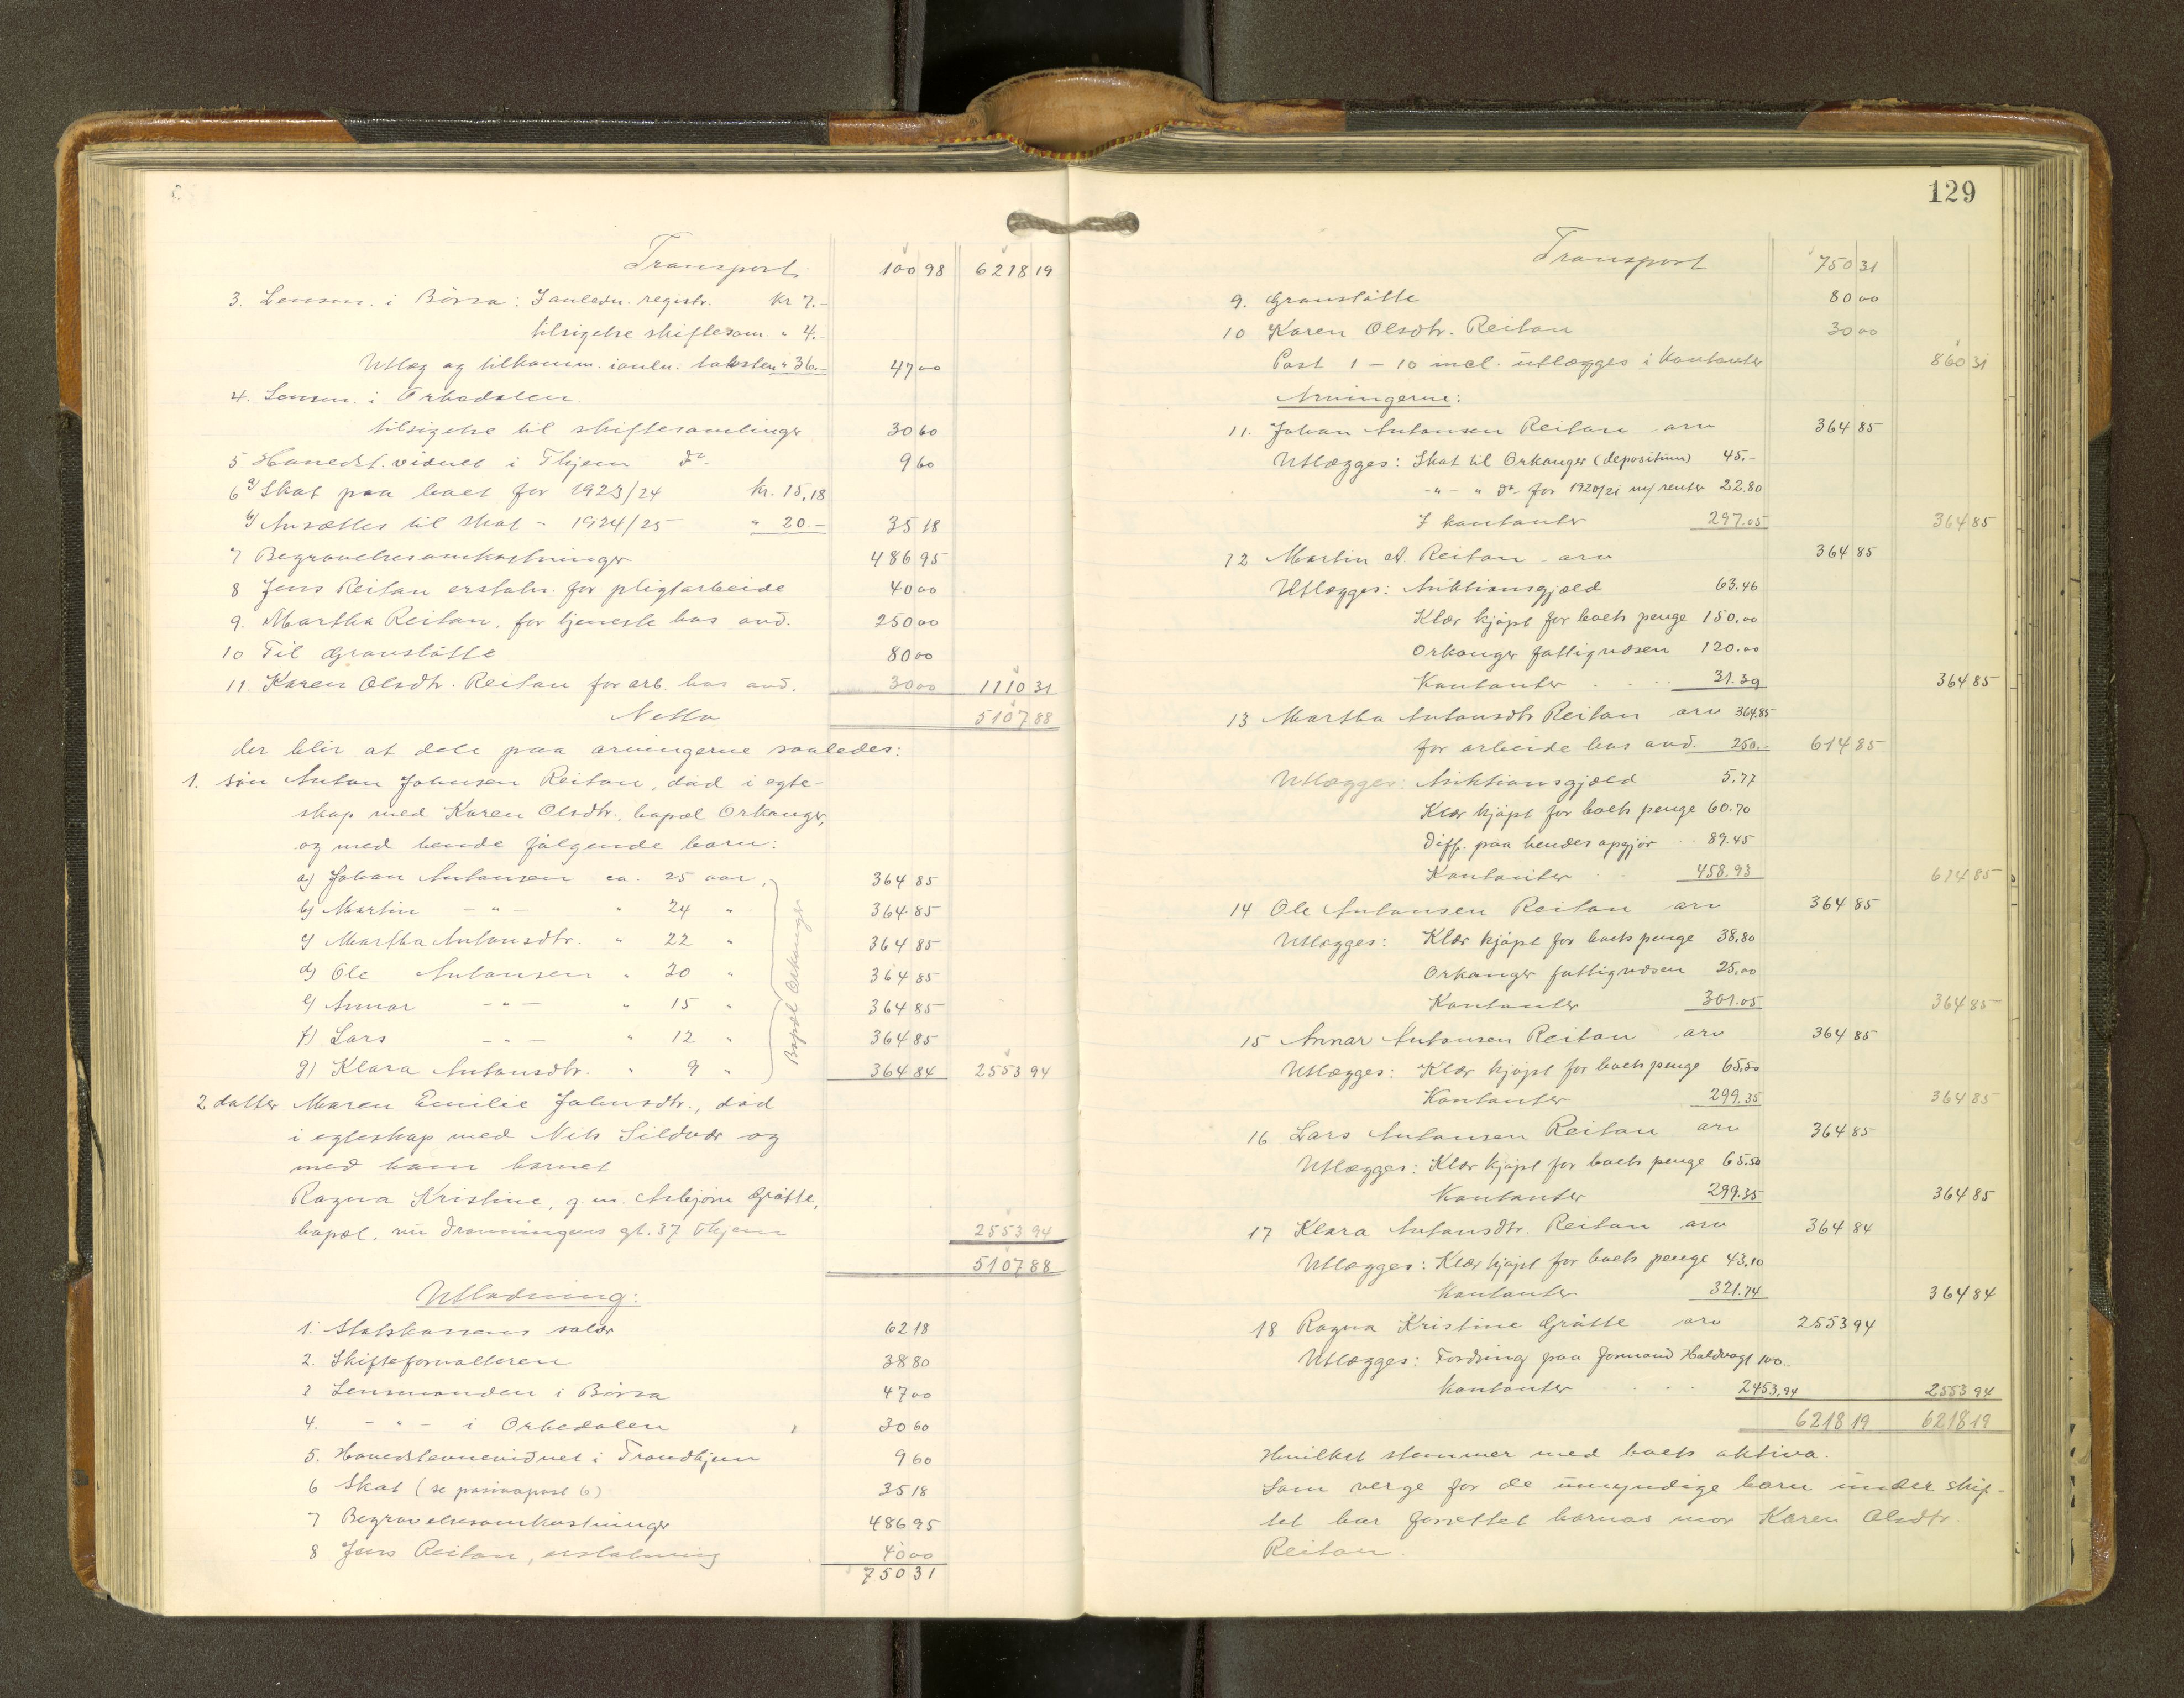 Transport 100 98 6218 19
3. Lensm. i Børsa: I anledn. registr. Kr 7.-
tilsigelse skiftesam. " 4.-
Utlæg og tilkomm. i anln. taksten " 36.- 47 00
4. Lensm. i Orkedalen.
tilsigelse til skiftesamlinger 30 60
5 Hovedst.vidnet i Thjem do 9 60
6 a) Skat paa boet for 1923/24 Kr. 15,18
b) Ansættes til skat - 1924/25 " 20.- 35 18
7 Begravelsesomkostninger 486 95
8 Jens Reitan erstatn. for pligtarbeide 40 00
9. Martha Reitan, for tjeneste hos avd. 250 00
10 Til Gravstøtte 80 00
11. Karen Olsdtr. Reitan for arb. hos avd. 30 00 1110 31
Netto 5107 88
der blir at dele paa arvingerne saaledes:
1. søn Anton Johnsen Reitan, død i egte-
skap med Karen Olsdtr., bopæl Orkanger,
og med hende følgende barn:
a) Johan Antonsen ca. 25 aar, 364 85
b) Martin - " - " 24 " 364 85
c) Martha Antonsdtr. " 22 " 364 85
d) Ole Antonsen " 20 " 364 85
e) Annar - " - " 15 " 364 85
f) Lars - " - " 12 " 364 85
g) Klara Antonsdtr. " 9 " 364 84 2553 94
Bopæl Orkanger
2 datter Maren Emilie Johnsdtr., død
i egteskap med Nils Sildvær og
med ham barnet
Ragna Kristine, g. m. Asbjørn Grøtte,
bopæl, nu Dronningens gt. 37 Thjem 2553 94
5107 88
Utlodning:
1. Statskassens salær 62 18
2. Skifteforvalteren 38 80
3 Lensmanden i Børsa 47 00
4. - " - i Orkedalen 30 60
5. Hovedstevnevidnet i Trondhjem 9 60
6 Skat (se passivapost 6) 35 18
7 Begravelsesomkostninger 486 95
8 Jens Reitan, erstatning 40 00
750 31
129
Transport 750 31
9. Gravstøtte 80 00
10 Karen Olsdtr. Reitan 30 00
Post 1 - 10 incl. utlægges i Kontanter 860 31
Arvingerne:
11. Johan Antonsen Reitan arv 364 85
Utlægges: Skat til Orkanger (depositum) 45.-
- " - " do for 1920/21 m/ renter 22.80
I kontanter 297.05 364 85
12 Martin A. Reitan arv 364 85
Utlægges: Auktionsgjæld 63.46
Klær kjøpt for boets penge 150.00
Orkanger fattigvæsen 120.00
Kontanter . . . 31.39 364 85
13 Martha Antonsdtr Reitan arv 364.85
for arbeide hos avd. 250.- 614 85
Utlægges: Auktionsgjæld 5.77
Klær kjøpt for boets penge 60.70
Diff. paa hendes opgjør . . 89.45
Kontanter . . 458.93 614 85
14 Ole Antonsen Reitan arv 364 85
Utlægges: Klær kjøpt for boets penge 38,80
Orkanger fattigvæsen 25,00
Kontanter 301.05 364 85
15 Annar Antonsen Reitan arv 364 85
Utlægges: Klær kjøpt for boets penge 65,50
Kontanter 299.35 364 85
16 Lars Antonsen Reitan arv 364 85
Utlægges: Klær kjøpt for boets penge 65.50
Kontanter 299.35 364 85
17 Klara Antonsdtr. Reitan arv 364 84
Utlægges: Klær kjøpt for boets penge 43,10
Kontanter 321.74 364 84
18 Ragna Kristine Grøtte arv 2553 94
Utlægges: Fordring paa formand Haldvogt 100..
Kontanter . . . . 2453,94 2553 94
6218 19 6218 19
Hvilket stemmer med boets aktiva.
Som verge for de umyndige barn under skif-
tet har forrettet barnas mor Karen Olsdtr.
Reitan.